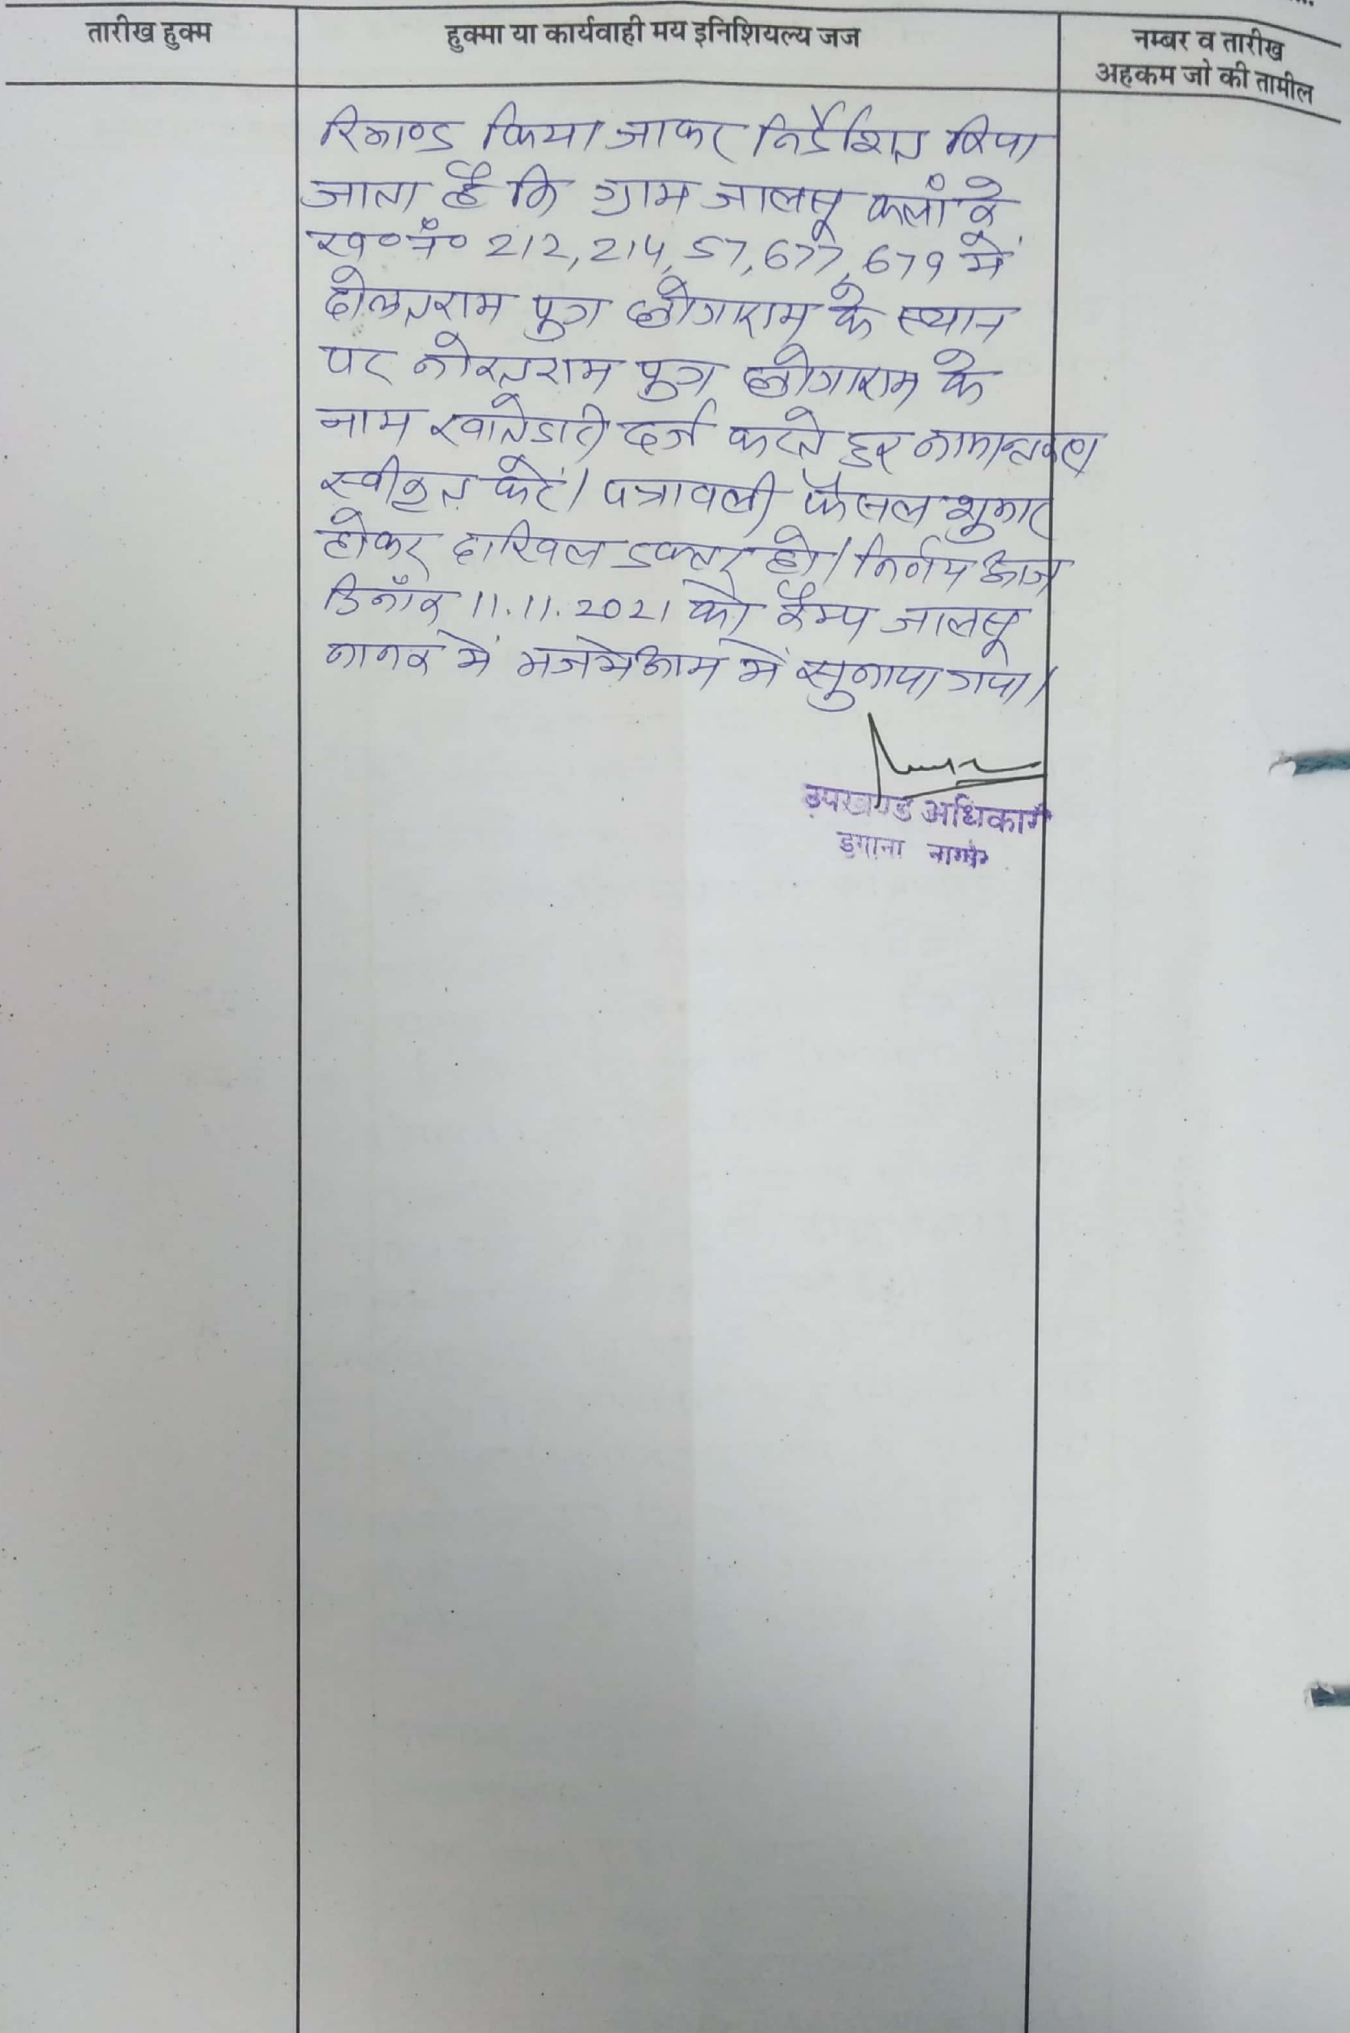 तारीख हुक्म
हुक्मा या कार्यवाही मय इनिशियल्य जज
नम्बर व तारीख
अहकम जो की तामील
रिमाण्ड किया जाकर निर्देशित किया
जाता है कि ग्राम जालसू कलां के
ख०नं० 212, 214, 57, 677, 679 में
दोलतराम पुत्र छोगाराम के स्थान
पर नोरतराम पुत्र छोगाराम के
नाम खातेदारी दर्ज करते हुए नामान्तकरण
स्वीकृत करें। पत्रावली फैसल शुमार
होकर दाखिल दफ्तर हो। निर्णय आज
दिनाँक 11.11.2021 को कैम्प जालसू
नानक में मजमेआम में सुनाया गया।
उपखण्ड अधिकारी
डेगाना नागौर